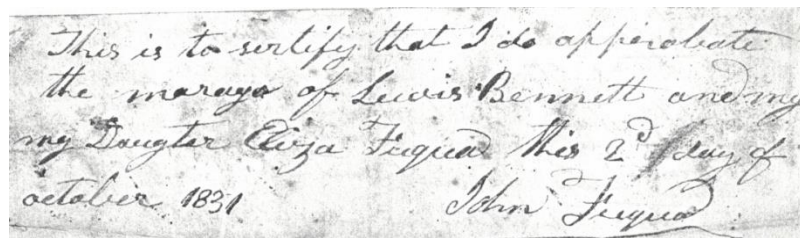 This is to sertify that I do apperobate
the marage of Lewis Bennett and my
my Daugter Eliza Fuqua this 2d day of
october 1831
John Fuqua